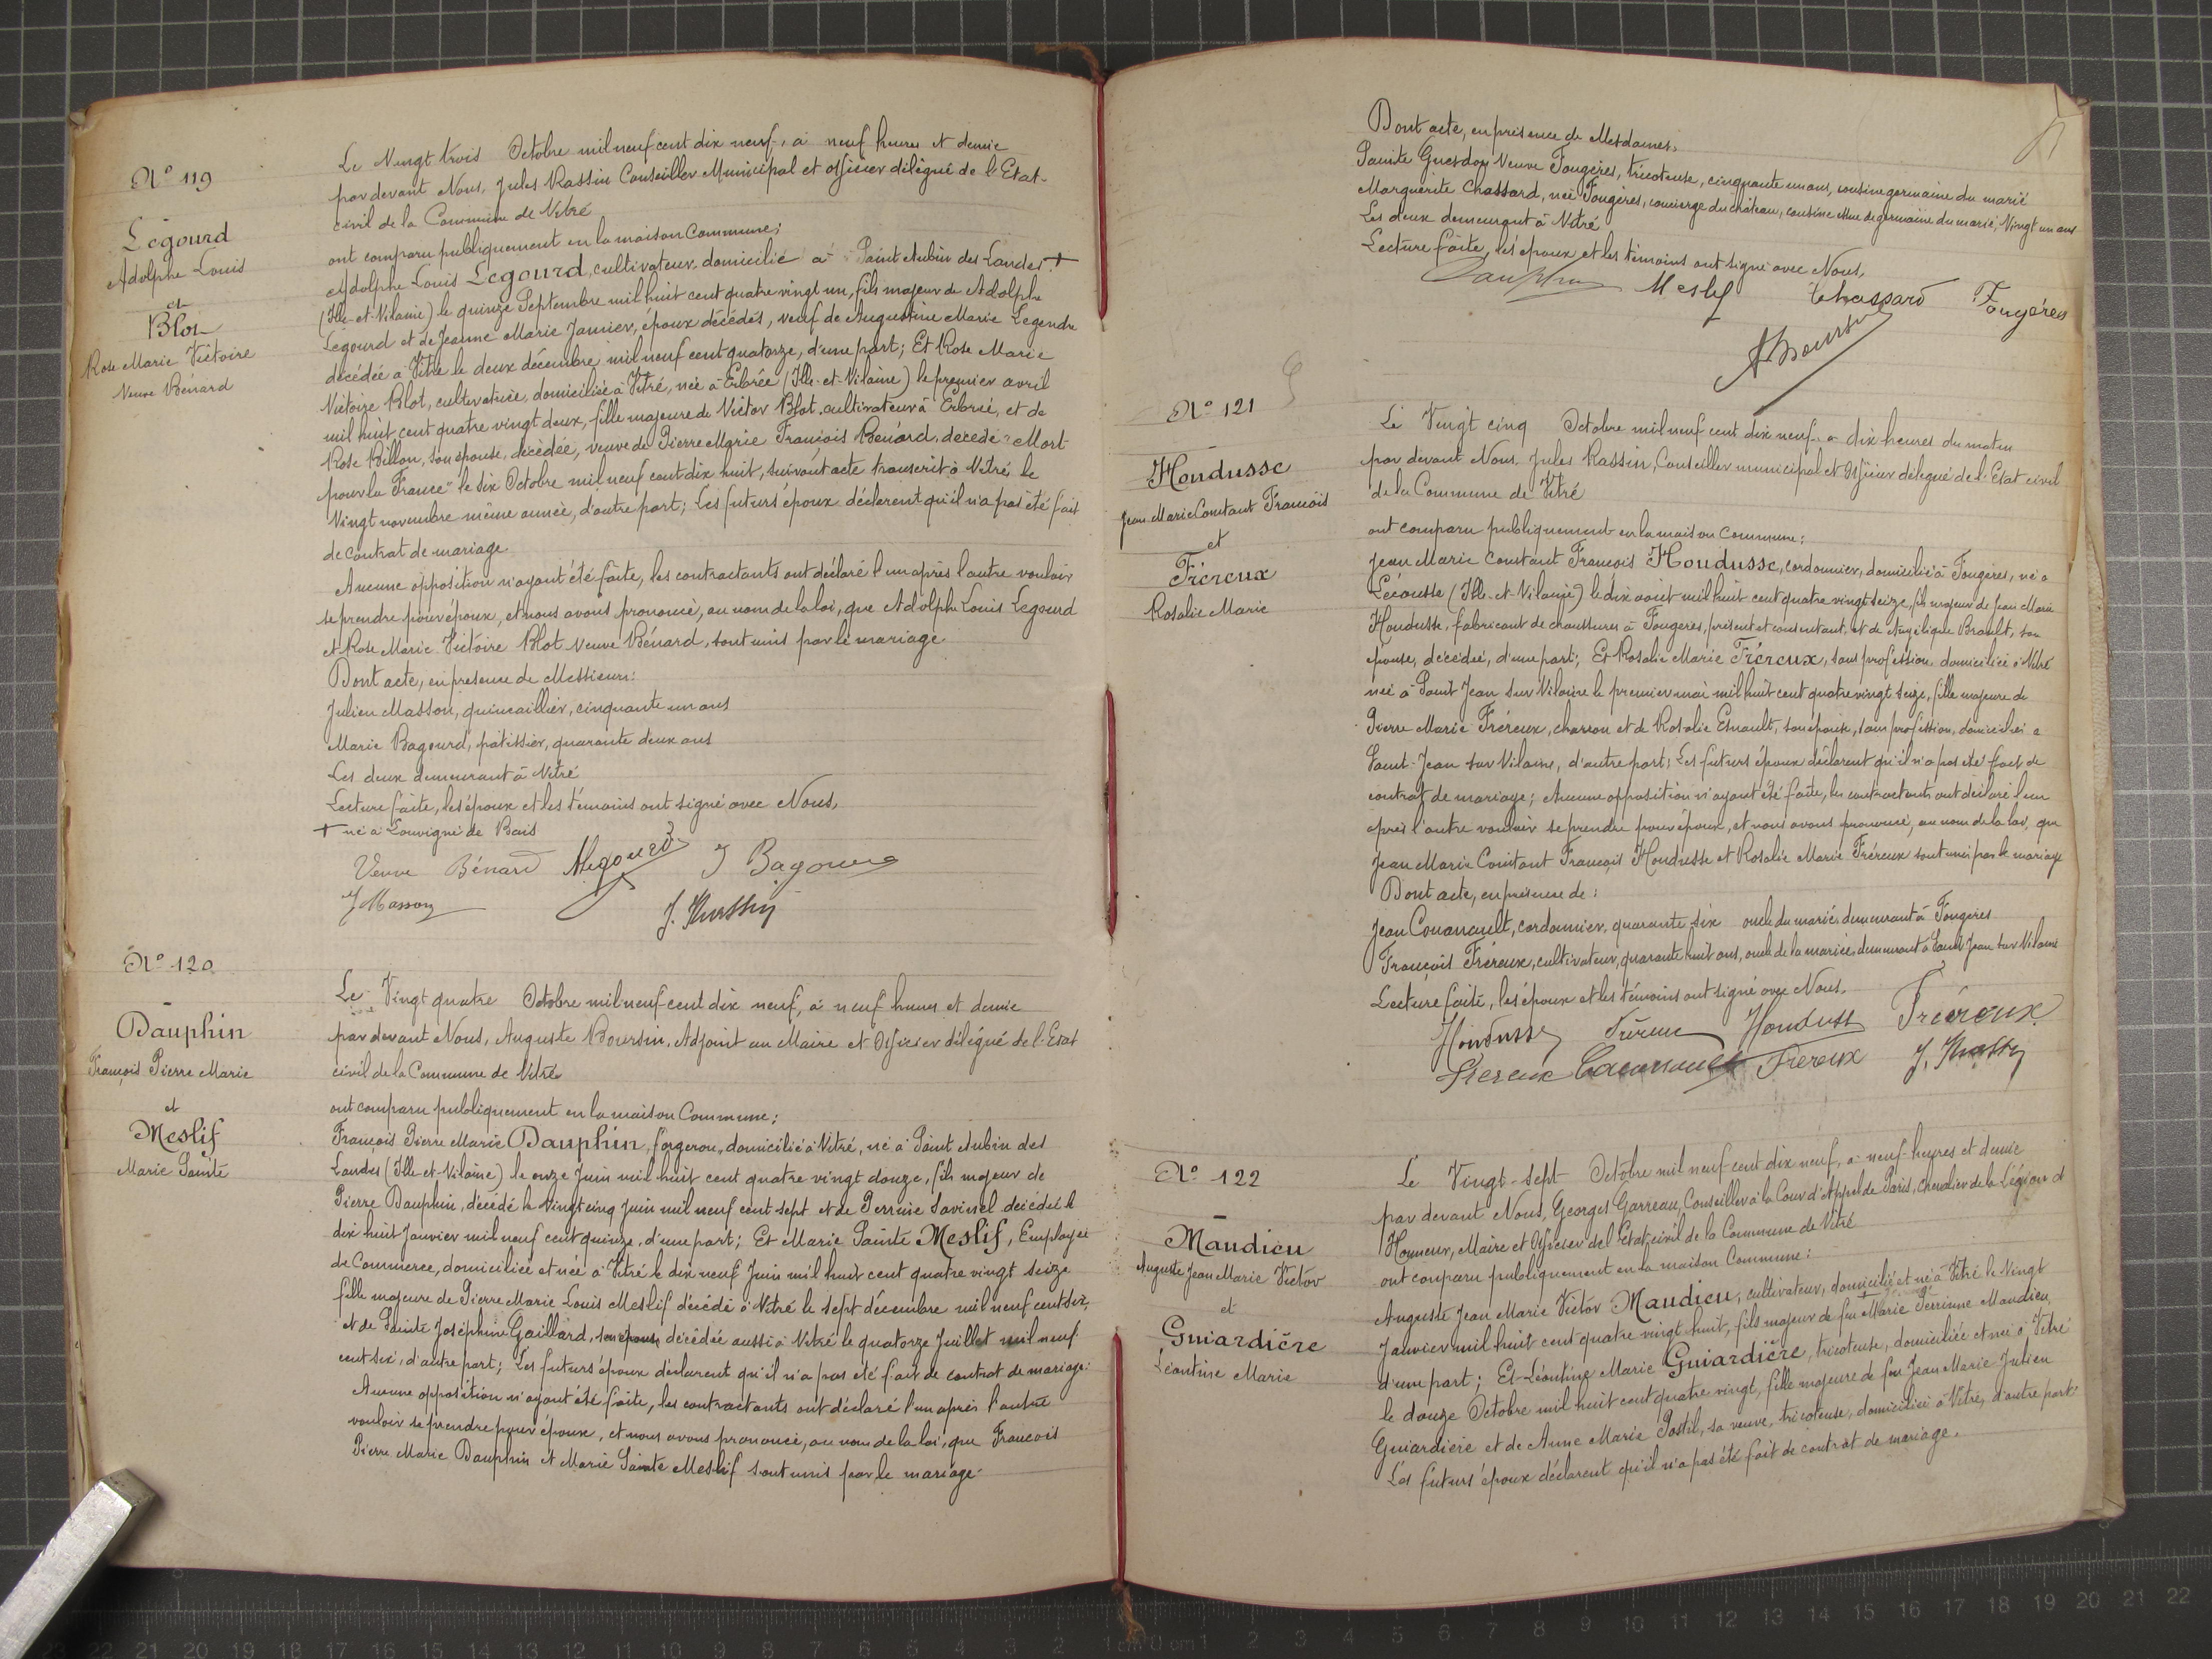 N° 119
Legourd
Adolphe Louis
et
Blot
Rose Marie Victoire
Veuve Bénard
Le Vingt trois Octobre mil neuf cent dix neuf, à neuf heures et demie
par devant Nous, Jules Rassin Conseiller Municipal et officier délégué de l'Etat-
civil de la Commune de Vitré
ont comparu publiquement en la maison Commune;
Adolphe Louis Legourd, cultivateur, domicilié à Saint Aubin des Landes +
(Ille-et-Vilaine) le quinze Septembre mil huit cent quatre vingt un, fils majeur de Adolphe
Legourd et de Jeanne Marie Janvier, époux décédés, veuf de Augustine Marie Legendre
décédée à Vitré le deux décembre mil neuf cent quatorze, d'une part; Et Rose Marie
Victoire Blot, cultivatrice, domiciliée à Vitré, née à Erbrée (Ille-et-Vilaine) le premier avril
mil huit cent quatre vingt deux, fille majeure de Victor Blot, cultivateur à Erbrée, et de
Rose Billon, son épouse, décédée, veuve de Pierre Marie François Bénard, décédé "Mort
pour la France" le six Octobre mil neuf cent dix huit, suivant acte transcrit à Vitré le
Vingt novembre même année, d'autre part; Les futurs époux déclarent qu'il n'a pas été fait
de contrat de mariage.
Aucune opposition n'ayant été faite, les contractants ont déclaré l'un après l'autre vouloir
se prendre pour époux, et nous avons prononcé, au nom de la loi, que Adolphe Louis Legourd
et Rose Marie Victoire Blot Veuve Bénard, sont unis par le mariage.
Dont acte, en présence de Messieurs:
Julien Masson, quincaillier, cinquante un ans
Marie Bagourd, pâtissier, quarante deux ans
Les deux demeurant à Vitré
Lecture faite, les époux et les témoins ont signé avec Nous,
+ né à Louvigné de Bais
Veuve Bénard ALegourd J Bagourd
J Masson J. Rassin
N° 120
Dauphin
François Pierre Marie
et
Meslif
Marie Sainte
Le Vingt quatre Octobre mil neuf cent dix neuf, à neuf heures et demie
par devant Nous, Auguste Boursin, Adjoint au Maire et Officier délégué de l'Etat
civil de la Commune de Vitré
ont comparu publiquement en la maison Commune;
François Pierre Marie Dauphin, forgeron, domicilié à Vitré, né à Saint Aubin des
Landes (Ille-et-Vilaine) le onze Juin mil huit cent quatre vingt douze, fils majeur de
Pierre Dauphin, décédé le Vingt cinq Juin mil neuf cent sept et de Perrine Savinel décédée le
dix huit Janvier mil neuf cent quinze, d'une part; Et Marie Sainte Meslif, Employée
de Commerce, domiciliée et née à Vitré le dix neuf Juin mil huit cent quatre vingt seize
fille majeure de Pierre Marie Louis Meslif décédé à Vitré le sept décembre mil neuf cent six,
et de Sainte Joséphine Gaillard, son épouse, décédée aussi à Vitré le quatorze Juillet mil neuf
cent six, d'autre part; Les futurs époux déclarent qu'il n'a pas été fait de contrat de mariage.
Aucune opposition n'ayant été faite, les contractants ont déclaré l'un après l'autre
vouloir se prendre pour époux, et nous avons prononcé, au nom de la loi, que François
Pierre Marie Dauphin et Marie Sainte Meslif sont unis par le mariage.
Dont acte, en présence de Mesdames,
Sainte Guesdon Veuve Fougères, tricoteuse, cinquante un ans, cousine germaine du marié
Marguerite Chassard, née Fougères, concierge du château, cousine issue de germaine du marié, Vingt un ans
Les deux demeurant à Vitré
Lecture faite, les époux et les témoins ont signé avec Nous,
Dauphin Meslif Chassard Fougères
A Boursin
N° 121
Houdusse
Jean Marie Constant François
et
Fréreux
Rosalie Marie
Le Vingt cinq Octobre mil neuf cent dix neuf à dix heures du matin
par devant Nous, Jules Rassin, Conseiller municipal et Officier délégué de l'Etat civil
de la Commune de Vitré
ont comparu publiquement en la maison Commune:
Jean Marie Constant François Houdusse, cordonnier, domicilié à Fougères, né à
Lécousse (Ille-et-Vilaine) le dix août mil huit cent quatre vingt seize, fils majeur de Jean Marie
Houdusse, fabricant de chaussures à Fougères, présent et consentant, et de Angélique Brault, son
épouse, décédée, d'une part; Et Rosalie Marie Fréreux, sans profession, domiciliée à Vitré
née à Saint Jean sur Vilaine le premier mai mil huit cent quatre vingt seize, fille majeure de
Pierre Marie Fréreux, charron et de Rosalie Esnault, son épouse, sans profession, domiciliés à
Saint-Jean sur Vilaine, d'autre part; Les futurs époux déclarent qu'il n'a pas été fait de
contrat de mariage; Aucune opposition n'ayant été faite, les contractants ont déclaré l'un
après l'autre vouloir se prendre pour époux, et nous avons prononcé, au nom de la loi, que
Jean Marie Constant François Houdusse et Rosalie Marie Fréreux sont unis par le mariage
Dont acte, en présence de:
Jean Couanault, cordonnier, quarante six oncle du marié, demeurant à Fougères
François Fréreux, cultivateur, quarante huit ans, oncle de la mariée, demeurant à Saint Jean sur Vilaine
Lecture faite, les époux et les témoins ont signé avec Nous.
Houdusse Fréreux Houdusse Fréreux
Fréreux Couanault Fréreux J. Rassin
N° 122
Maudieu
Auguste Jean Marie Victor
et
Guiardière
Léontine Marie
Le Vingt-sept Octobre mil neuf cent dix neuf, à neuf heures et demie
par devant Nous, Georges Garreau, Conseiller à la Cour d'Appel de Paris, chevalier de la Légion d'
Honneur, Maire et Officier de l'Etat-civil de la Commune de Vitré
ont comparu publiquement en la maison Commune:
Auguste Jean Marie Victor Maudieu, cultivateur, domicilié et né à Vitré le Vingt
Janvier mil huit cent quatre vingt huit, fils majeur de feu Marie Perrinne Maudieu,
d'une part; Et Léontine Marie Guiardière, tricoteuse, domiciliée et née à Vitré
le douze Octobre mil huit cent quatre vingt, fille majeure de feu Jean Marie Julien
Guiardière et de Anne Marie Postil, sa veuve, tricoteuse, domiciliée à Vitré, d'autre part
Les futurs époux déclarent qu'il n'a pas été fait de contrat de mariage.